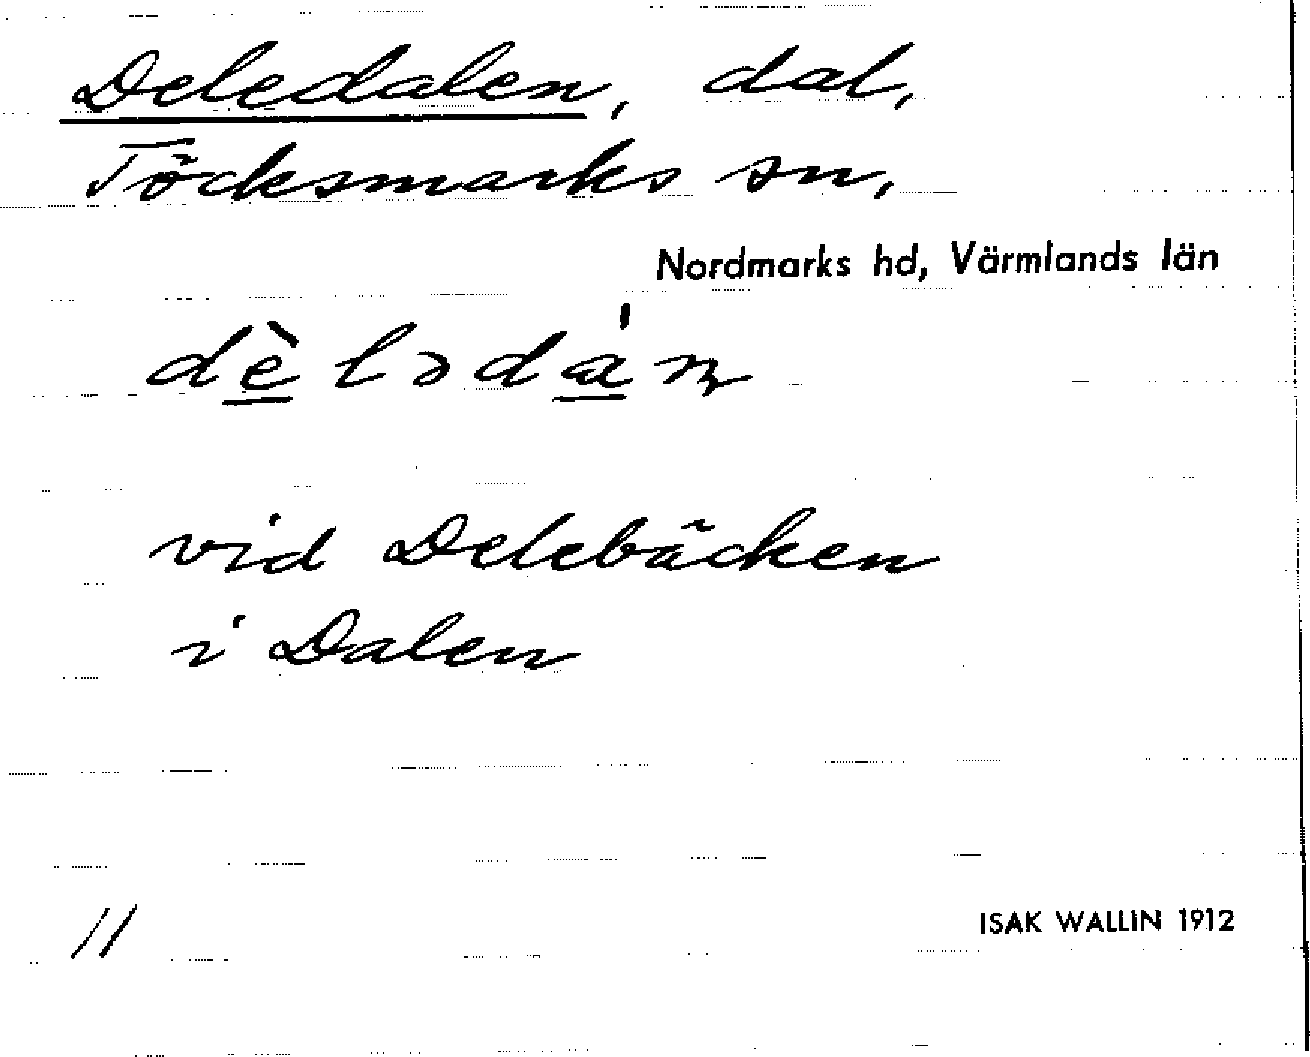 Deledalen, dal,
Töcksmarks sn,
Nordmarks hd, Värmlands län
dè lədán
vid Delebäcken
i Dalen
11
ISAK WALLIN 1912